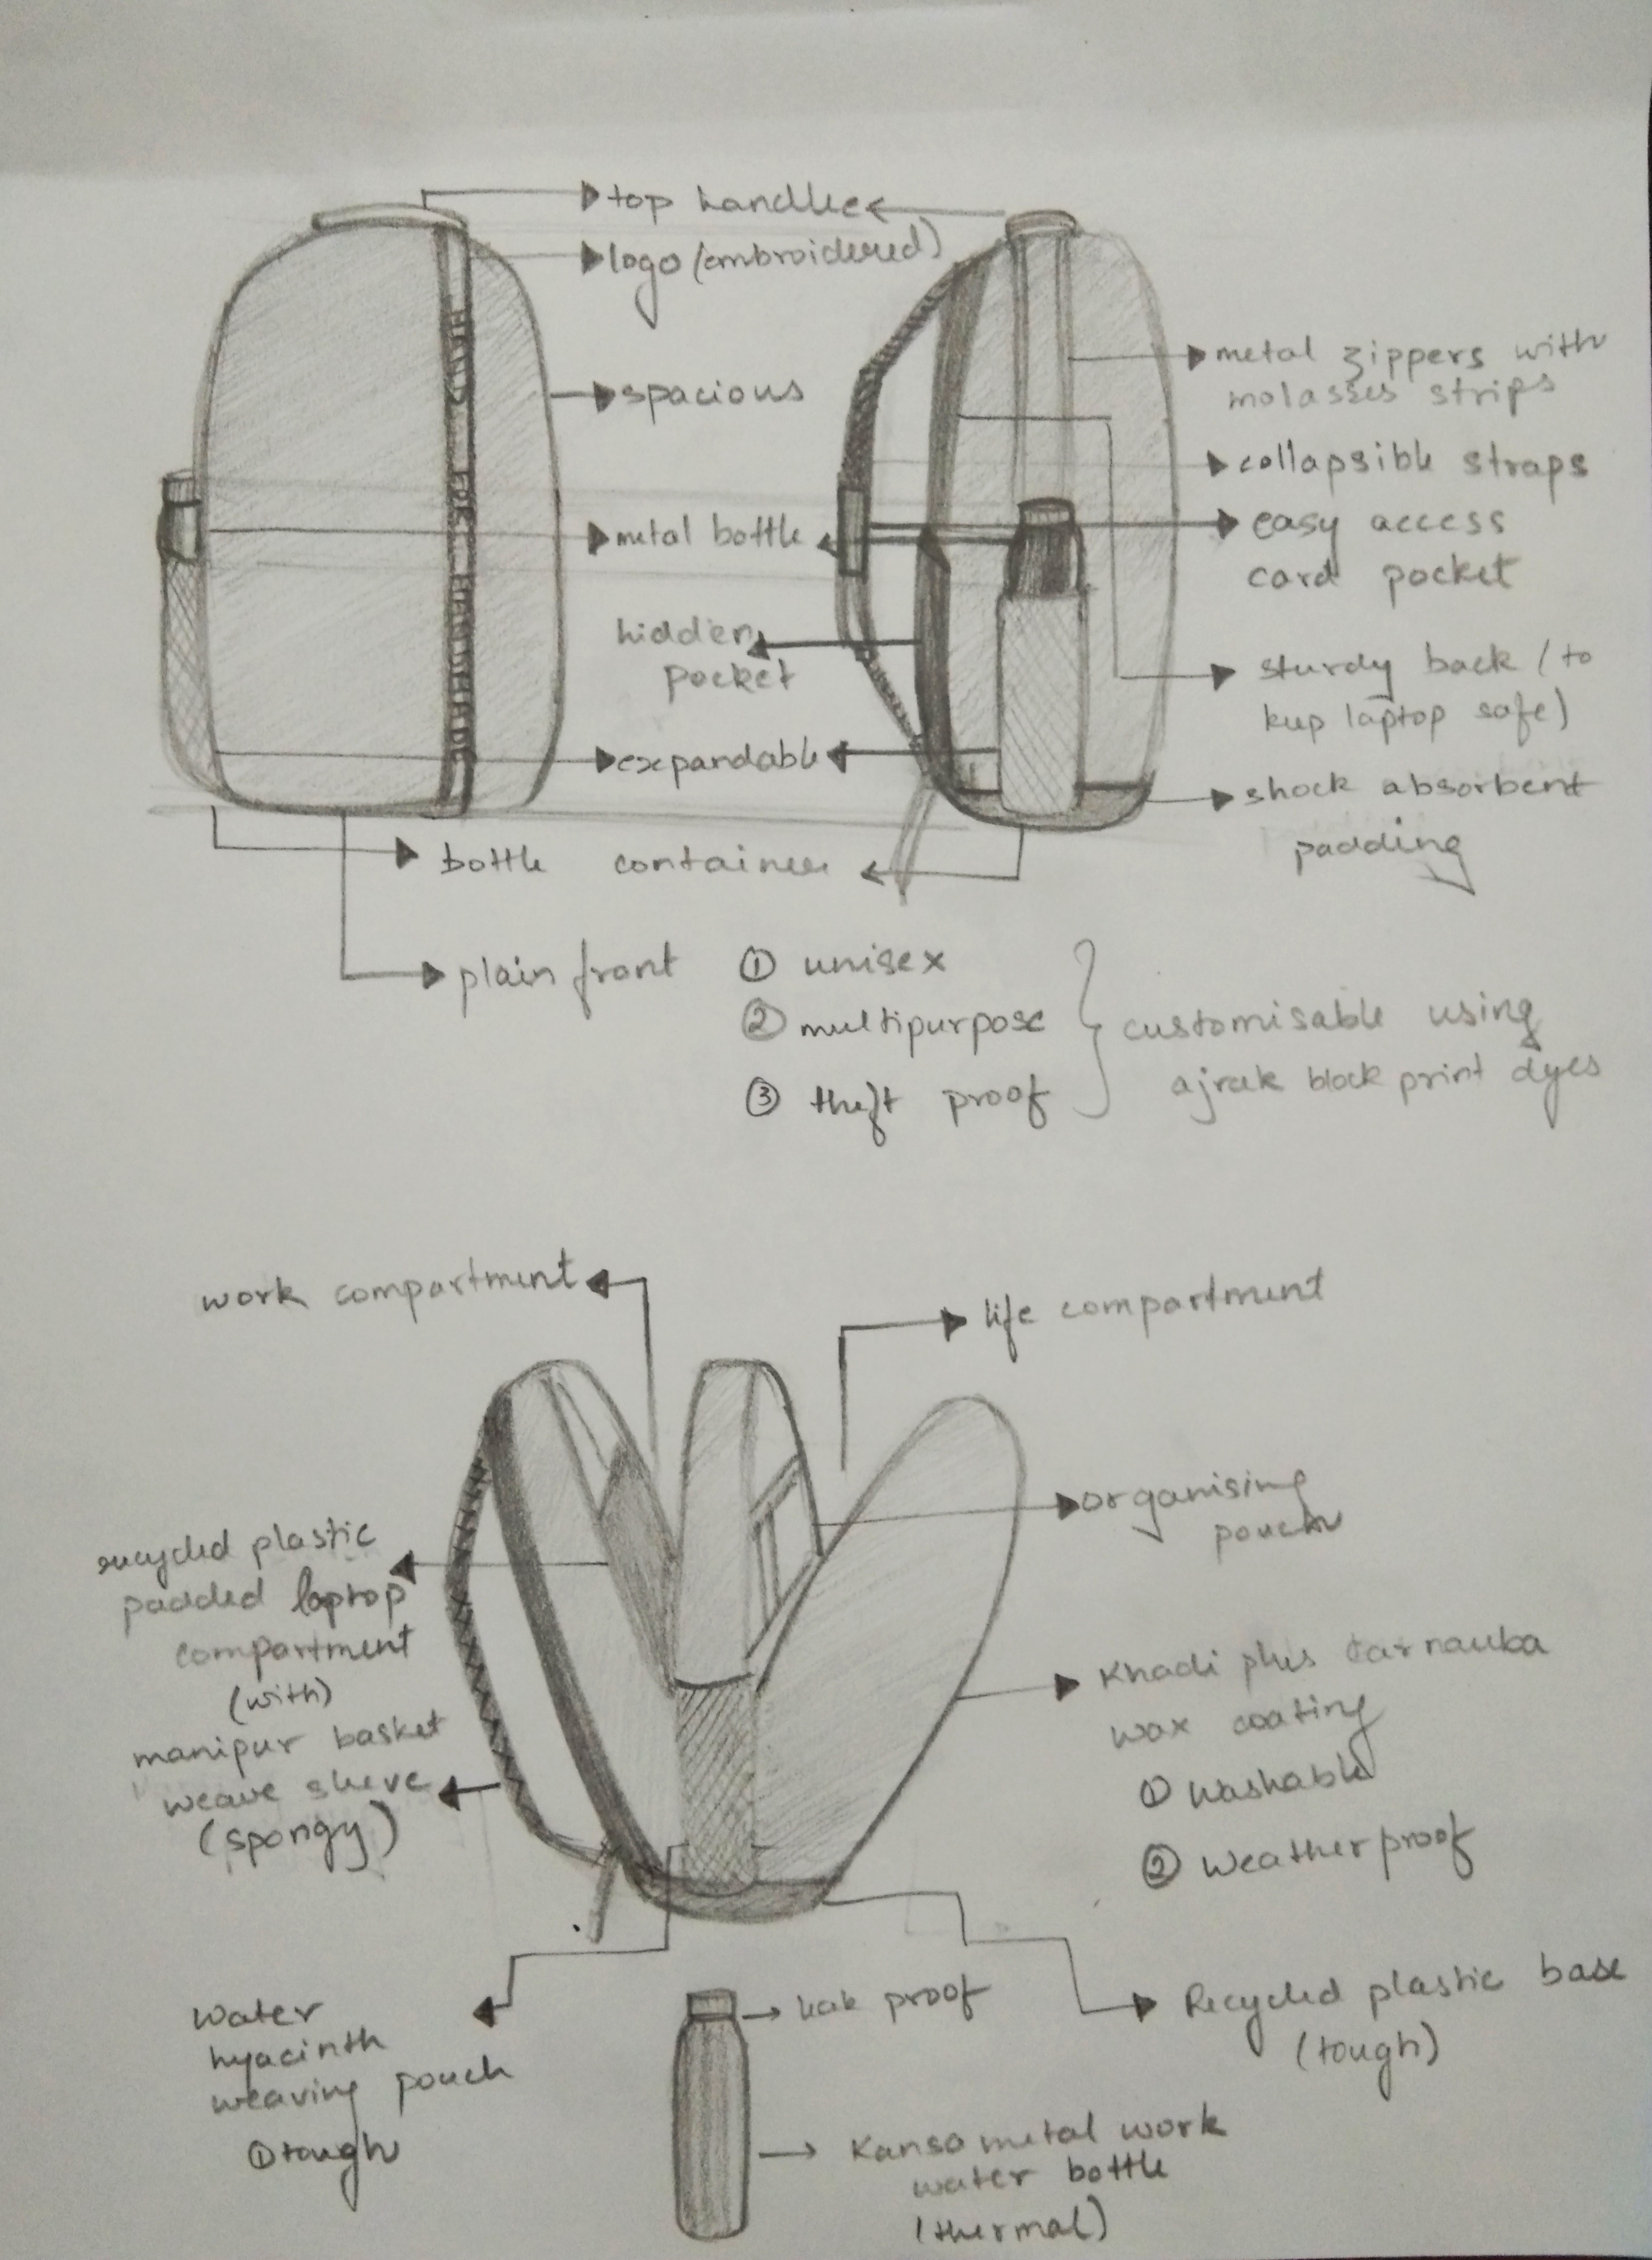 top handle
logo (embroidered)
spacious
metal bottle
hidden
pocket
expandable
bottle container
plain front
metal zippers with
molasses strips
collapsible straps
easy access
card pocket
sturdy back (to
keep laptop safe)
shock absorbent
padding
① unisex
② multipurpose
③ theft proof
customisable using
ajrak block print dyes
work compartment
life compartment
organising
pouch
recycled plastic
padded laptop
compartment
(with)
manipur basket
weave sleeve
(spongy)
Khadi plus Carnauba
wax coating
① Washable
② Weatherproof
Water
hyacinth
weaving pouch
① tough
leak proof
Recycled plastic base
(tough)
Kansa metal work
water bottle
(thermal)